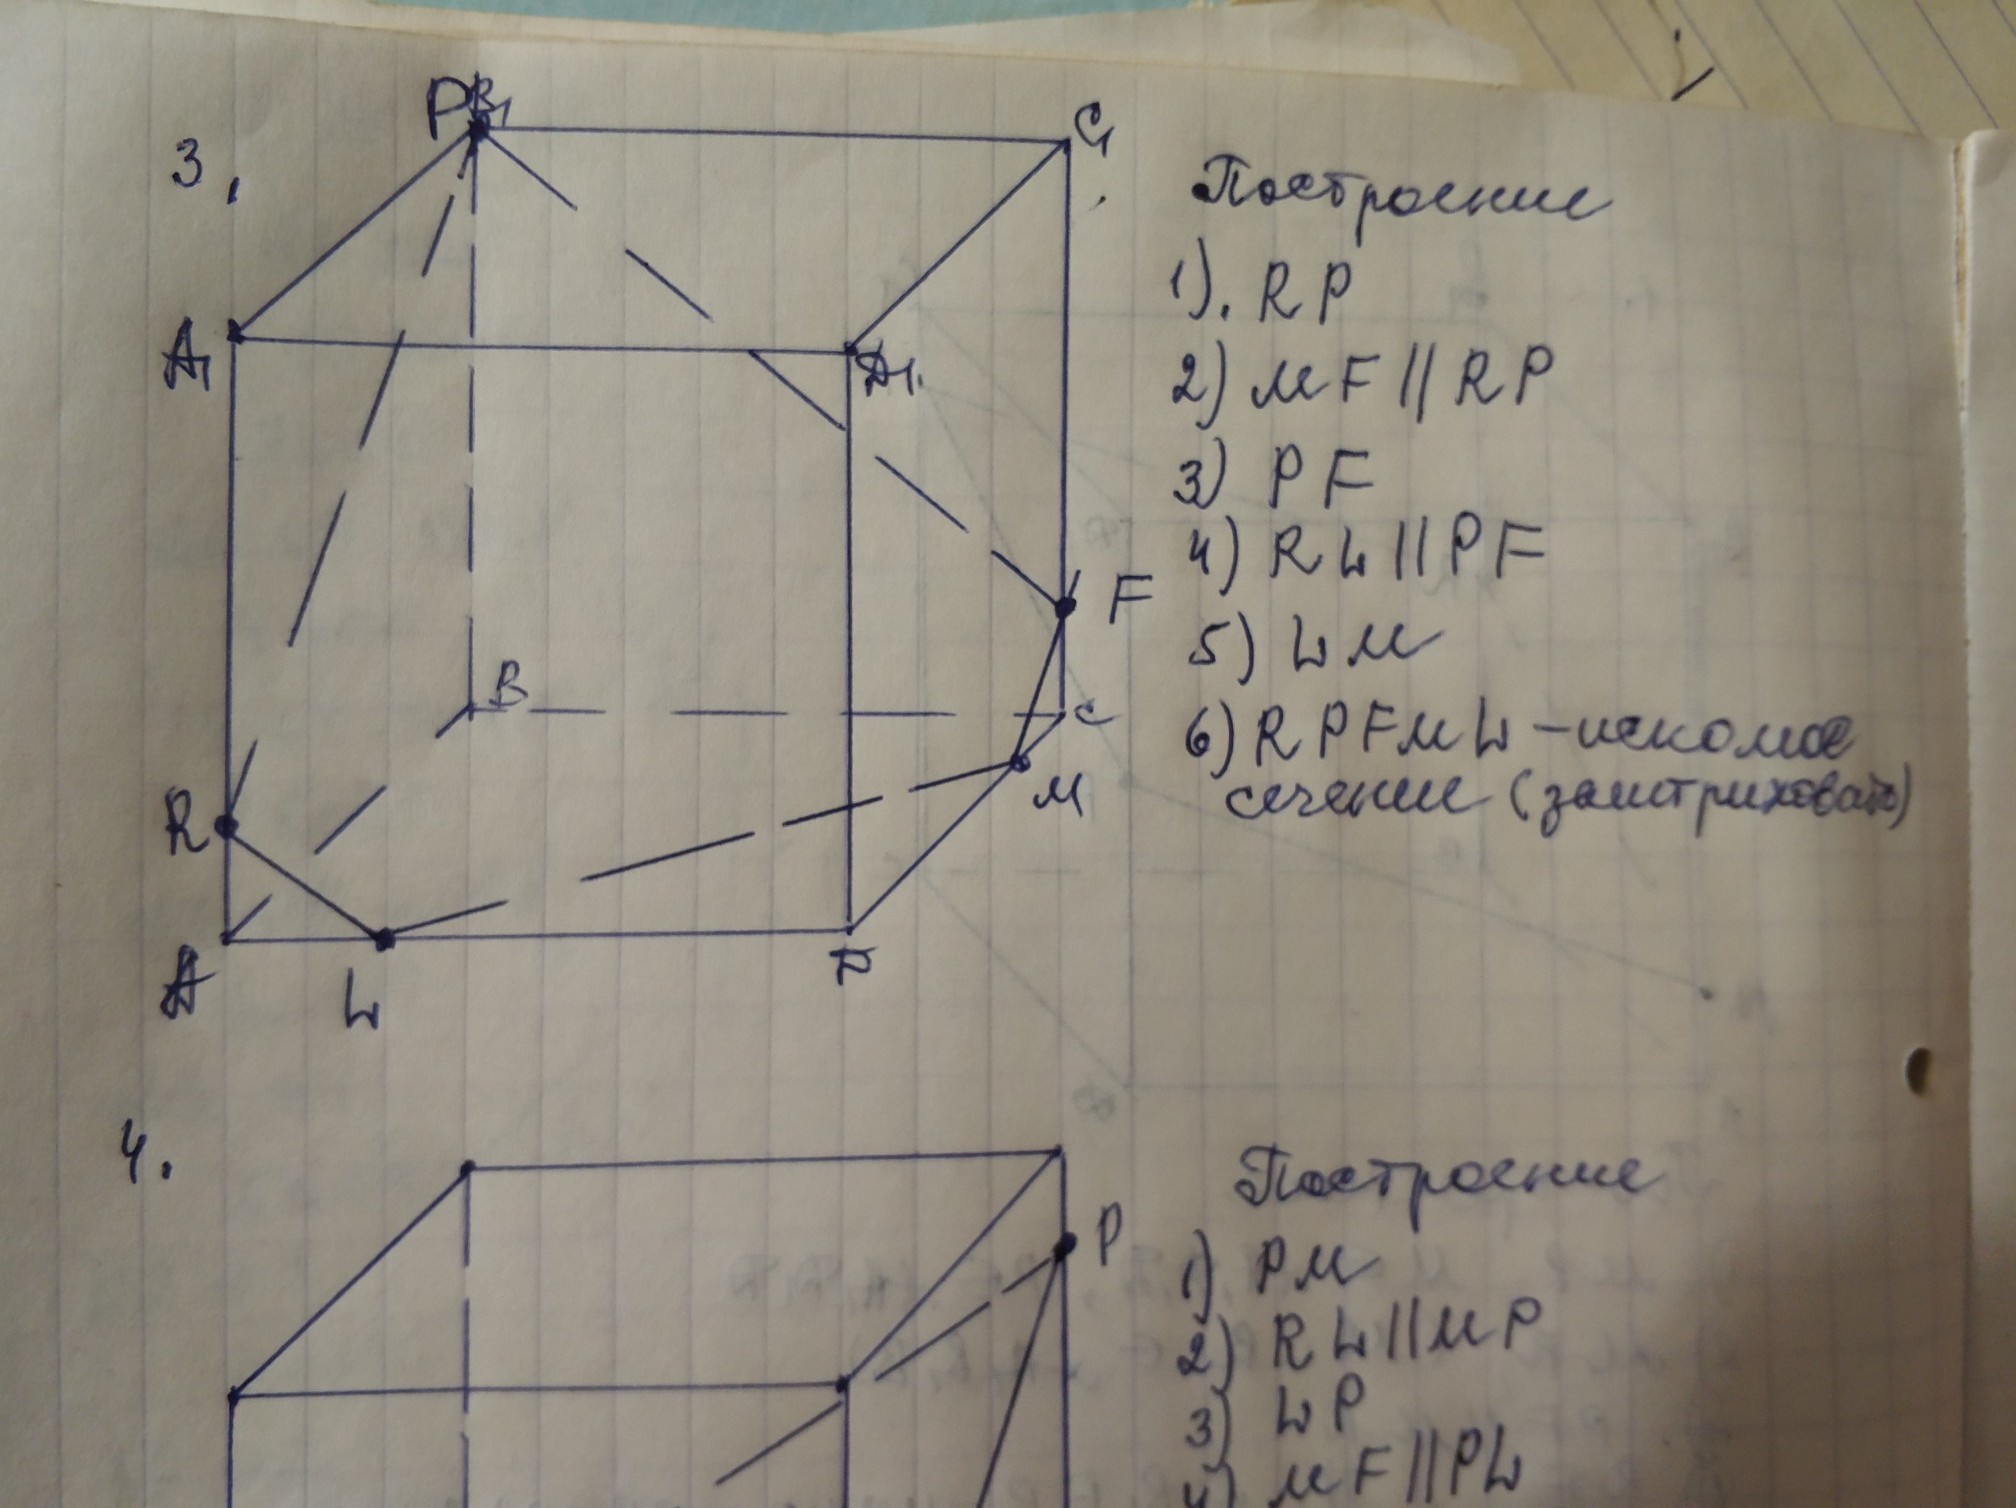 3.
P B₁
C₁
A₁
D₁
F
B
C
R
M
A
L
D
Построение
1). RP
2) MF || RP
3) PF
4) RL || PF
5) LM
6) RPFML – искомое
сечение (заштриховать)
4.
P
Построение
1) PM
2) RL || MP
3) LP
4) MF || PL